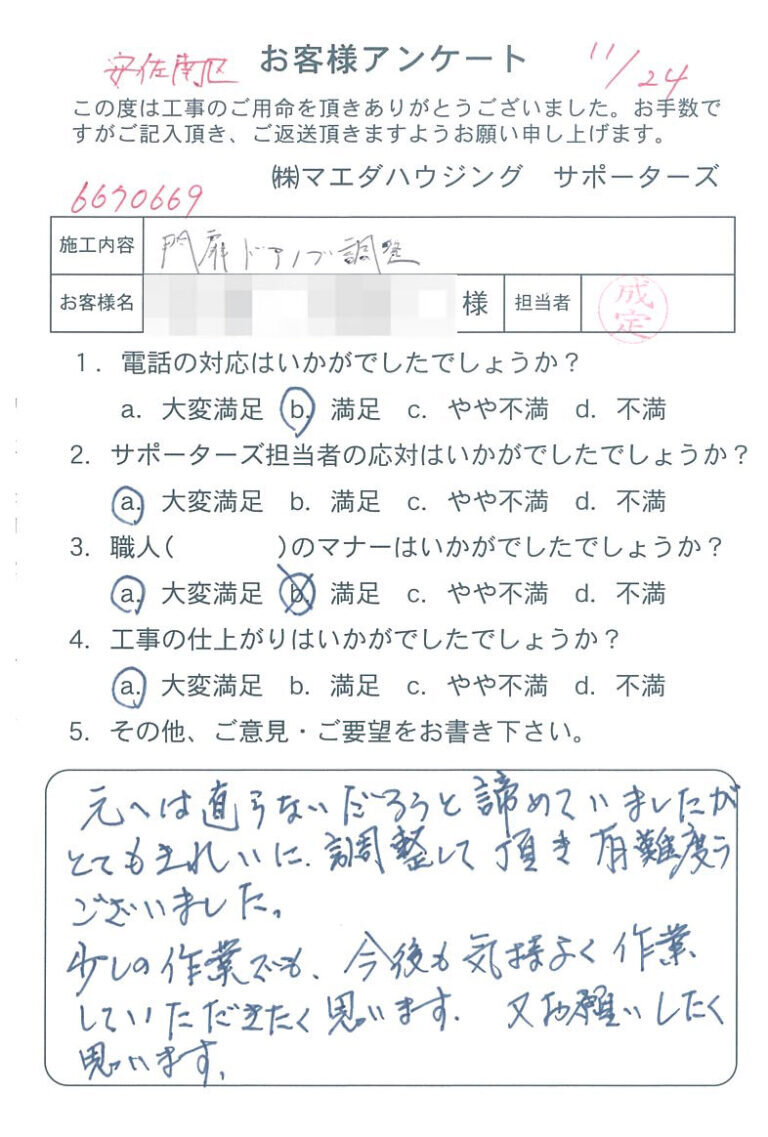 安佐南区 お客様アンケート 11/24
この度は工事のご用命を頂きありがとうございました。お手数で
すがご記入頂き、ご返送頂きますようお願い申し上げます。
㈱マエダハウジング サポーターズ
6670669
施工内容 門扉ドアノブ調整
お客様名 様 担当者 成定
1. 電話の対応はいかがでしたでしょうか？
a. 大変満足 b. 満足 c. やや不満 d. 不満
2. サポーターズ担当者の応対はいかがでしたでしょうか？
a. 大変満足 b. 満足 c. やや不満 d. 不満
3. 職人( )のマナーはいかがでしたでしょうか？
a. 大変満足 b. 満足 c. やや不満 d. 不満
4. 工事の仕上がりはいかがでしたでしょうか？
a. 大変満足 b. 満足 c. やや不満 d. 不満
5. その他、ご意見・ご要望をお書き下さい。
元へは直らないだろうと諦めていましたが
とてもきれいに、調整して頂き有難度う
ございました。
少しの作業でも、今後も気持よく作業
していただきたく思います。又お願いしたく
思います。